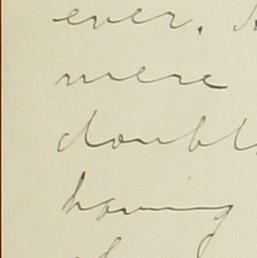 ever.
mere
doubt
having